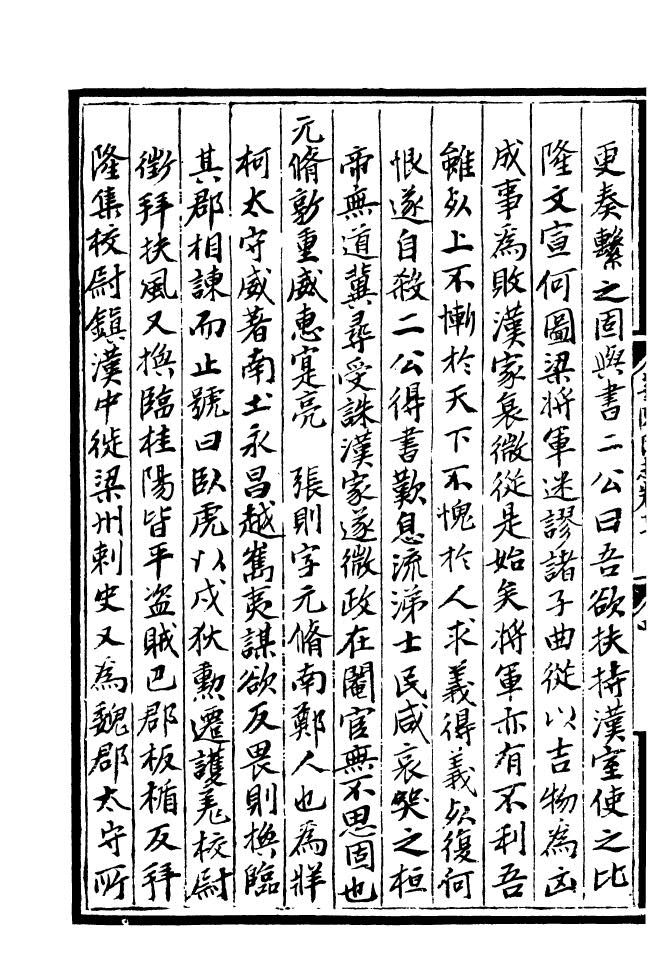 更奏繫之固與書二公曰吾欲扶持漢室使之比
隆文宣何圖梁將軍迷謬諸子曲從以吉物為凶
成事為敗漢家衰微從是始矣將軍亦有不利吾
雖死上不慚於天下不愧於人求義得義死復何
恨遂自殺二公得書歎息流涕士民咸哀哭之桓
帝無道冀尋受誅漢家遂微政在閹官無不思固也
元脩敦重威惠寔亮　張則字元脩南鄭人也為牂
柯太守威著南土永昌越嶲夷謀欲反畏則換臨
其郡相諫而止號曰臥虎以戍狄勲遷護羌校尉
徵拜扶風又換臨桂陽皆平盜賊巴郡板楯反拜
隆集校尉鎮漢中徙梁州刺史又為魏郡太守所